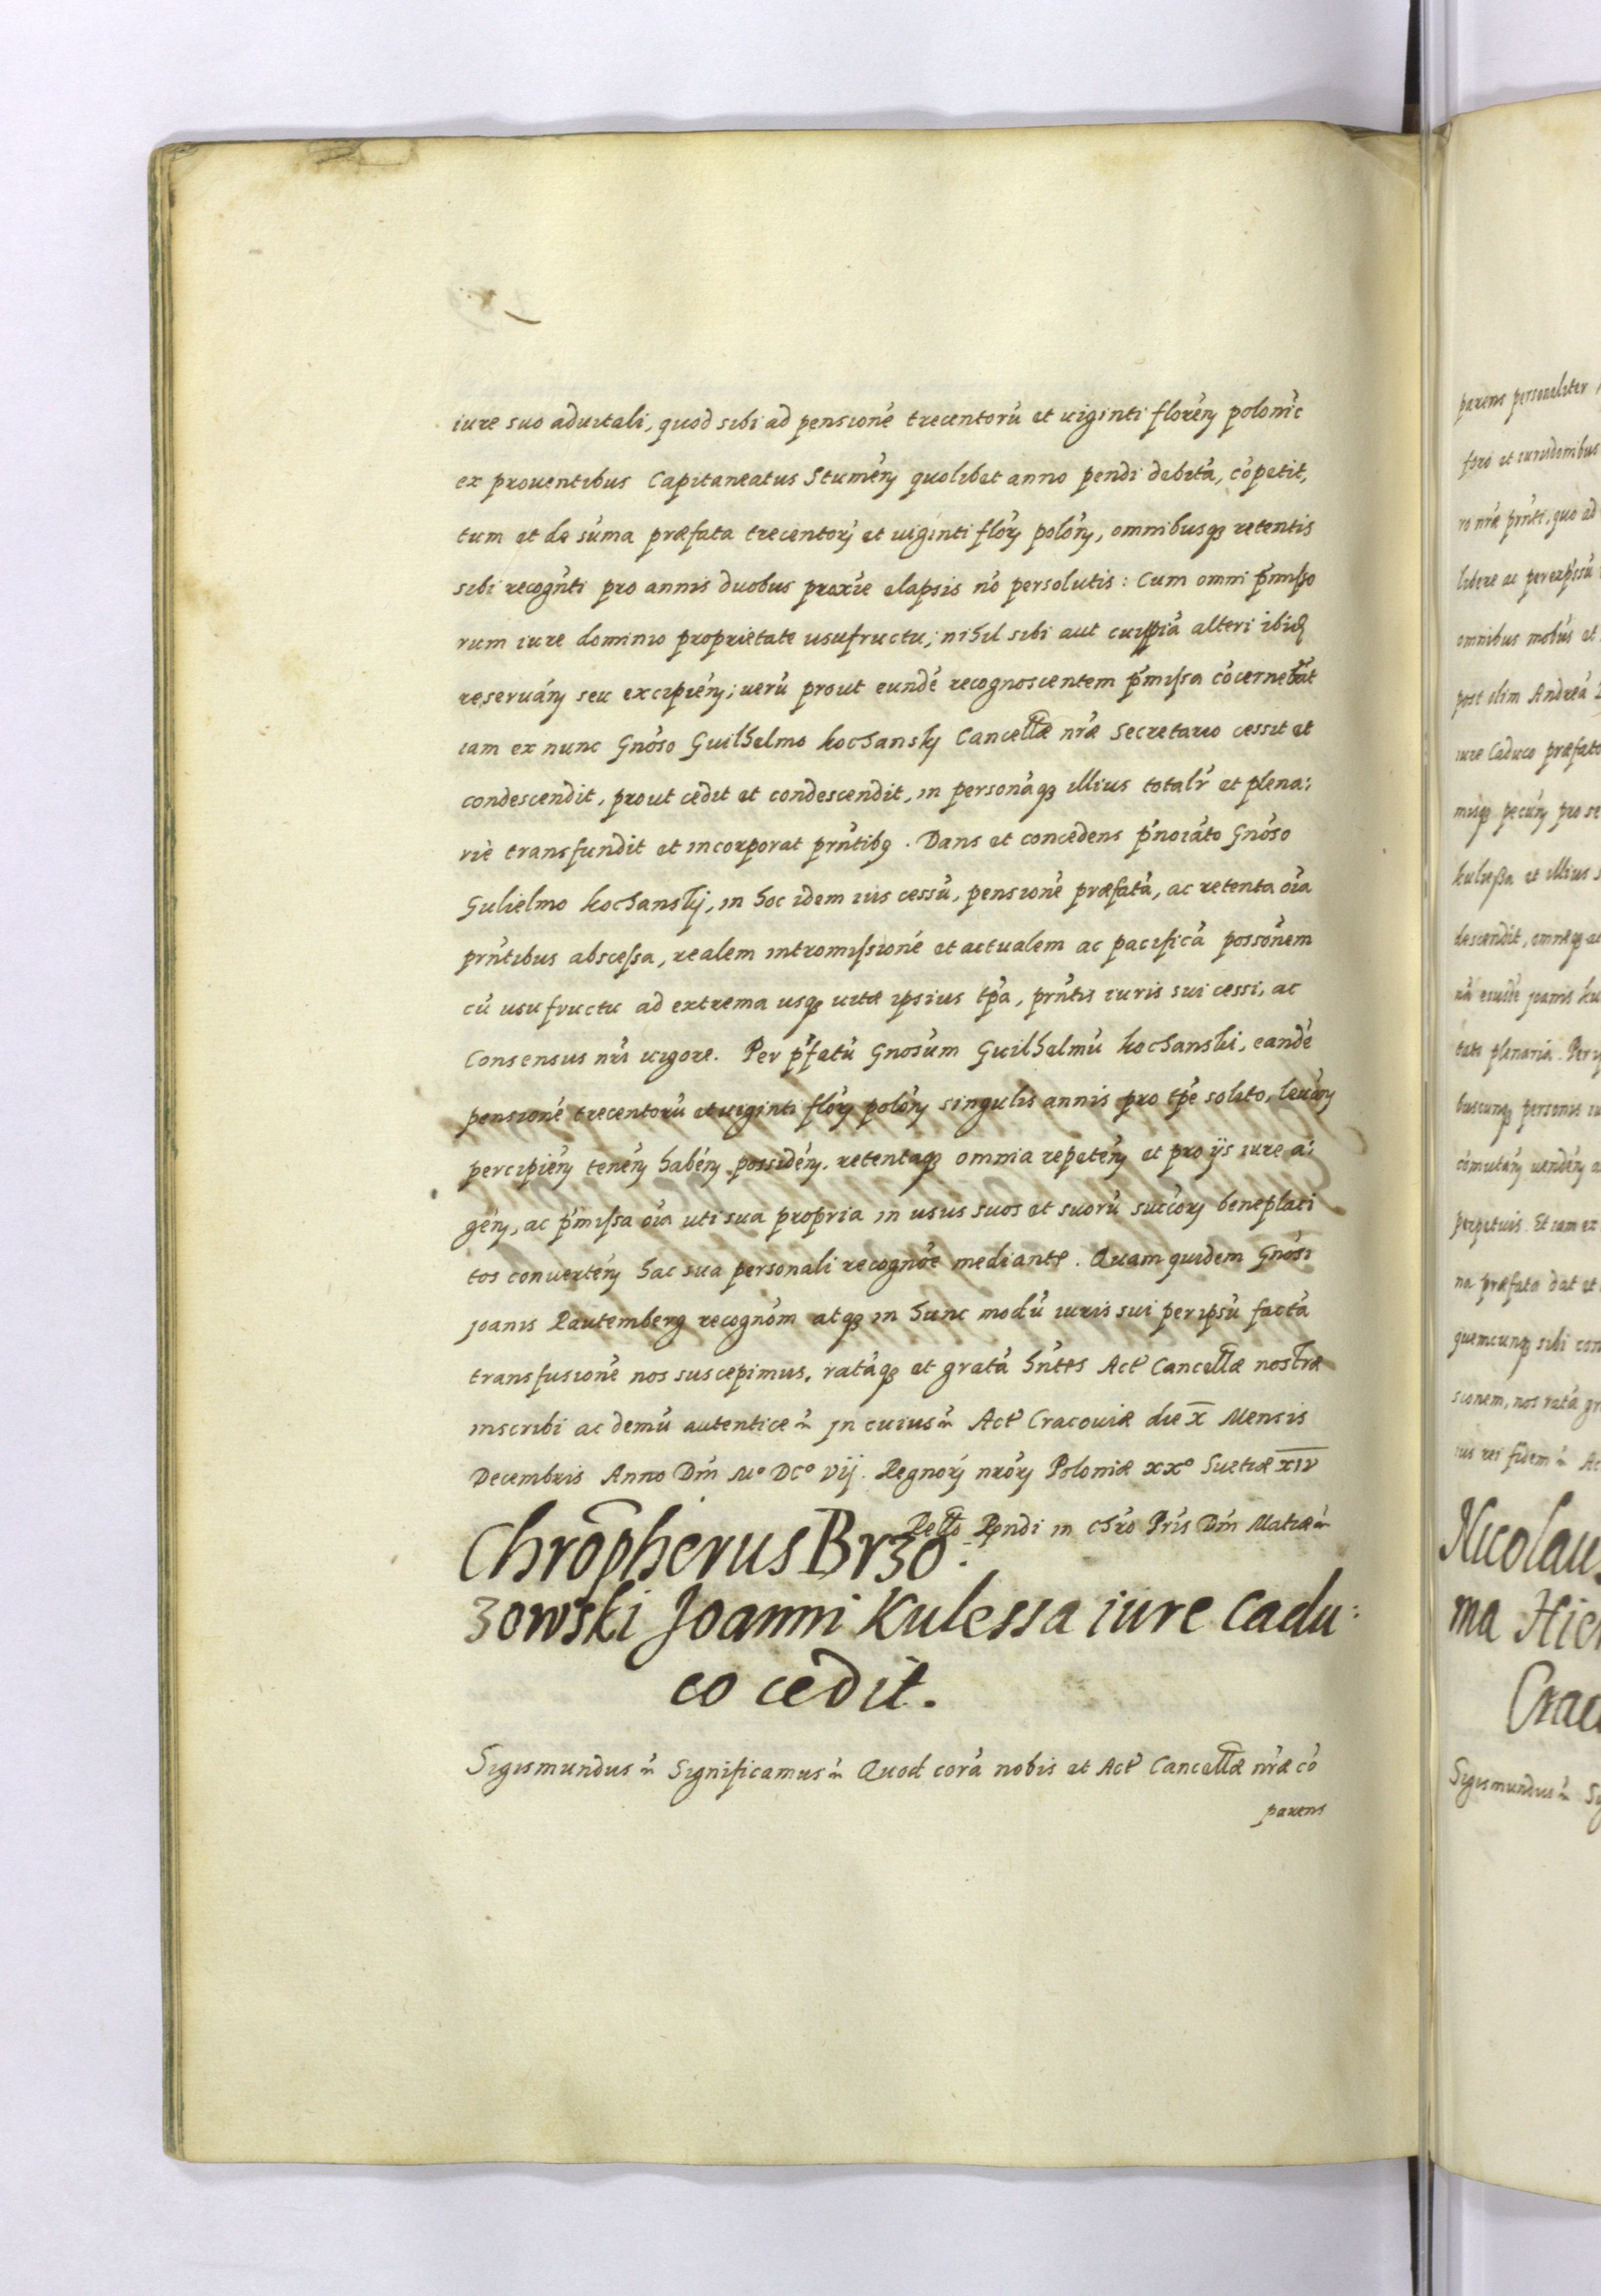 iure suo aduitali, quod sibi ad pensionē trecentorū et uiginti florēn polonic
ex prouentibus Capitaneatus Stumēn quolibet anno pendi debitā, cōpetit,
tum et de sūma præfata trecentorŭ et uiginti flōr polōn, omnibusq3 retentis
sibi recogn̄ti pro annis duobus proxīe elapsis nō persolutis: Cum omni p̄misso
rum iure dominio proprietate usufructu, nihil sibi aut cuipiā alteri ibid
reseruān seu excipiēn; uerū prout eundē recognoscentem p̄missa cōcernebāt
iam ex nunc Gnōso Guilhelmo Kochansky Cancellæ nr̄æ Secretario cessit et
condescendit, prout cedit et condescendit, in personāq3 illius totalr̄ et plena:
riè transfundit et incorporat prn̄tibq. Dans et concedens p̄noīato Gnōso
Gulielmo Kochanskj, in hoc idem ius cessū, pensionē præfatā, ac retenta oīa
prn̄tibus abscessa, realem intromissionē et actualem ac pacificā possōnem
cū usufructu ad extrema usq3 uitæ ipsius tp̄a, prn̄tis iuris sui cessi, ac
Consensus nr̄i uigore. Per p̄fatū Gnosum Guilhelmū Kochanski, eandē
pensionē trecentorū et uiginti flōr polōn singulis annis pro tp̄e solito, leuān
percipiēn tenēn habēn possidēn. retentaq3 omnia repetēn et pro ijs iure a:
gēn, ac p̄missa oīa uti sua propria in usus suos et suorū succor̄ beneplaci
tos conuertēn hac sua personali recognōe mediante. Quam quidem Gnōsi
Joanis Rautemberg recognōm atq3 in hunc modū iuris sui per ipsū factā
transfusionē nos suscepimus, ratāq3 et gratā hn̄tes Act̄ Cancellæ nostræ
inscribi ac demū autentice ɛ̄ Jn cuius ɛ̄ Act̄ Cracouiæ die x̄ Mensis
Decembris Anno Dm̄ M° DC° vij. Regnorŭ nrōr Poloniæ xx° Suetiæ XIV
Rel̄lo Rendi in Chr̄o Pr̄is Dm̄ Matiæ ɛ̄
Chrōpherus Brzo:
zowski Joanni Kulessa iure Cadu:
co cedit.
Sigismundus ɛ̄ Significamus ɛ̄ Quod corā nobis et Act̄ Cancellæ nr̄æ cō
parens
parens personaliter
foro et iurisdonibus
ro nr̄æ prn̄ti, quo ad
libere ac per expr̄ssū
omnibus mōbus et
post olim Andreā
iure Caduco præfato
misq3 pecūn pro se
Kulessa et illius
descendit, omneq3
nā eiusdē Joanis Ku
tate plenaria. Per
buscunq3 personis
cōmutān uendēn
perpetuis. Et iam ex
na præfata dat et
quemcunq3 sibi con
sionem, nos ratā gr
ius rei fidem ɛ̄ Ac
Nicolaus
ma Hier
Crac
Sigismundus ɛ̄ Si